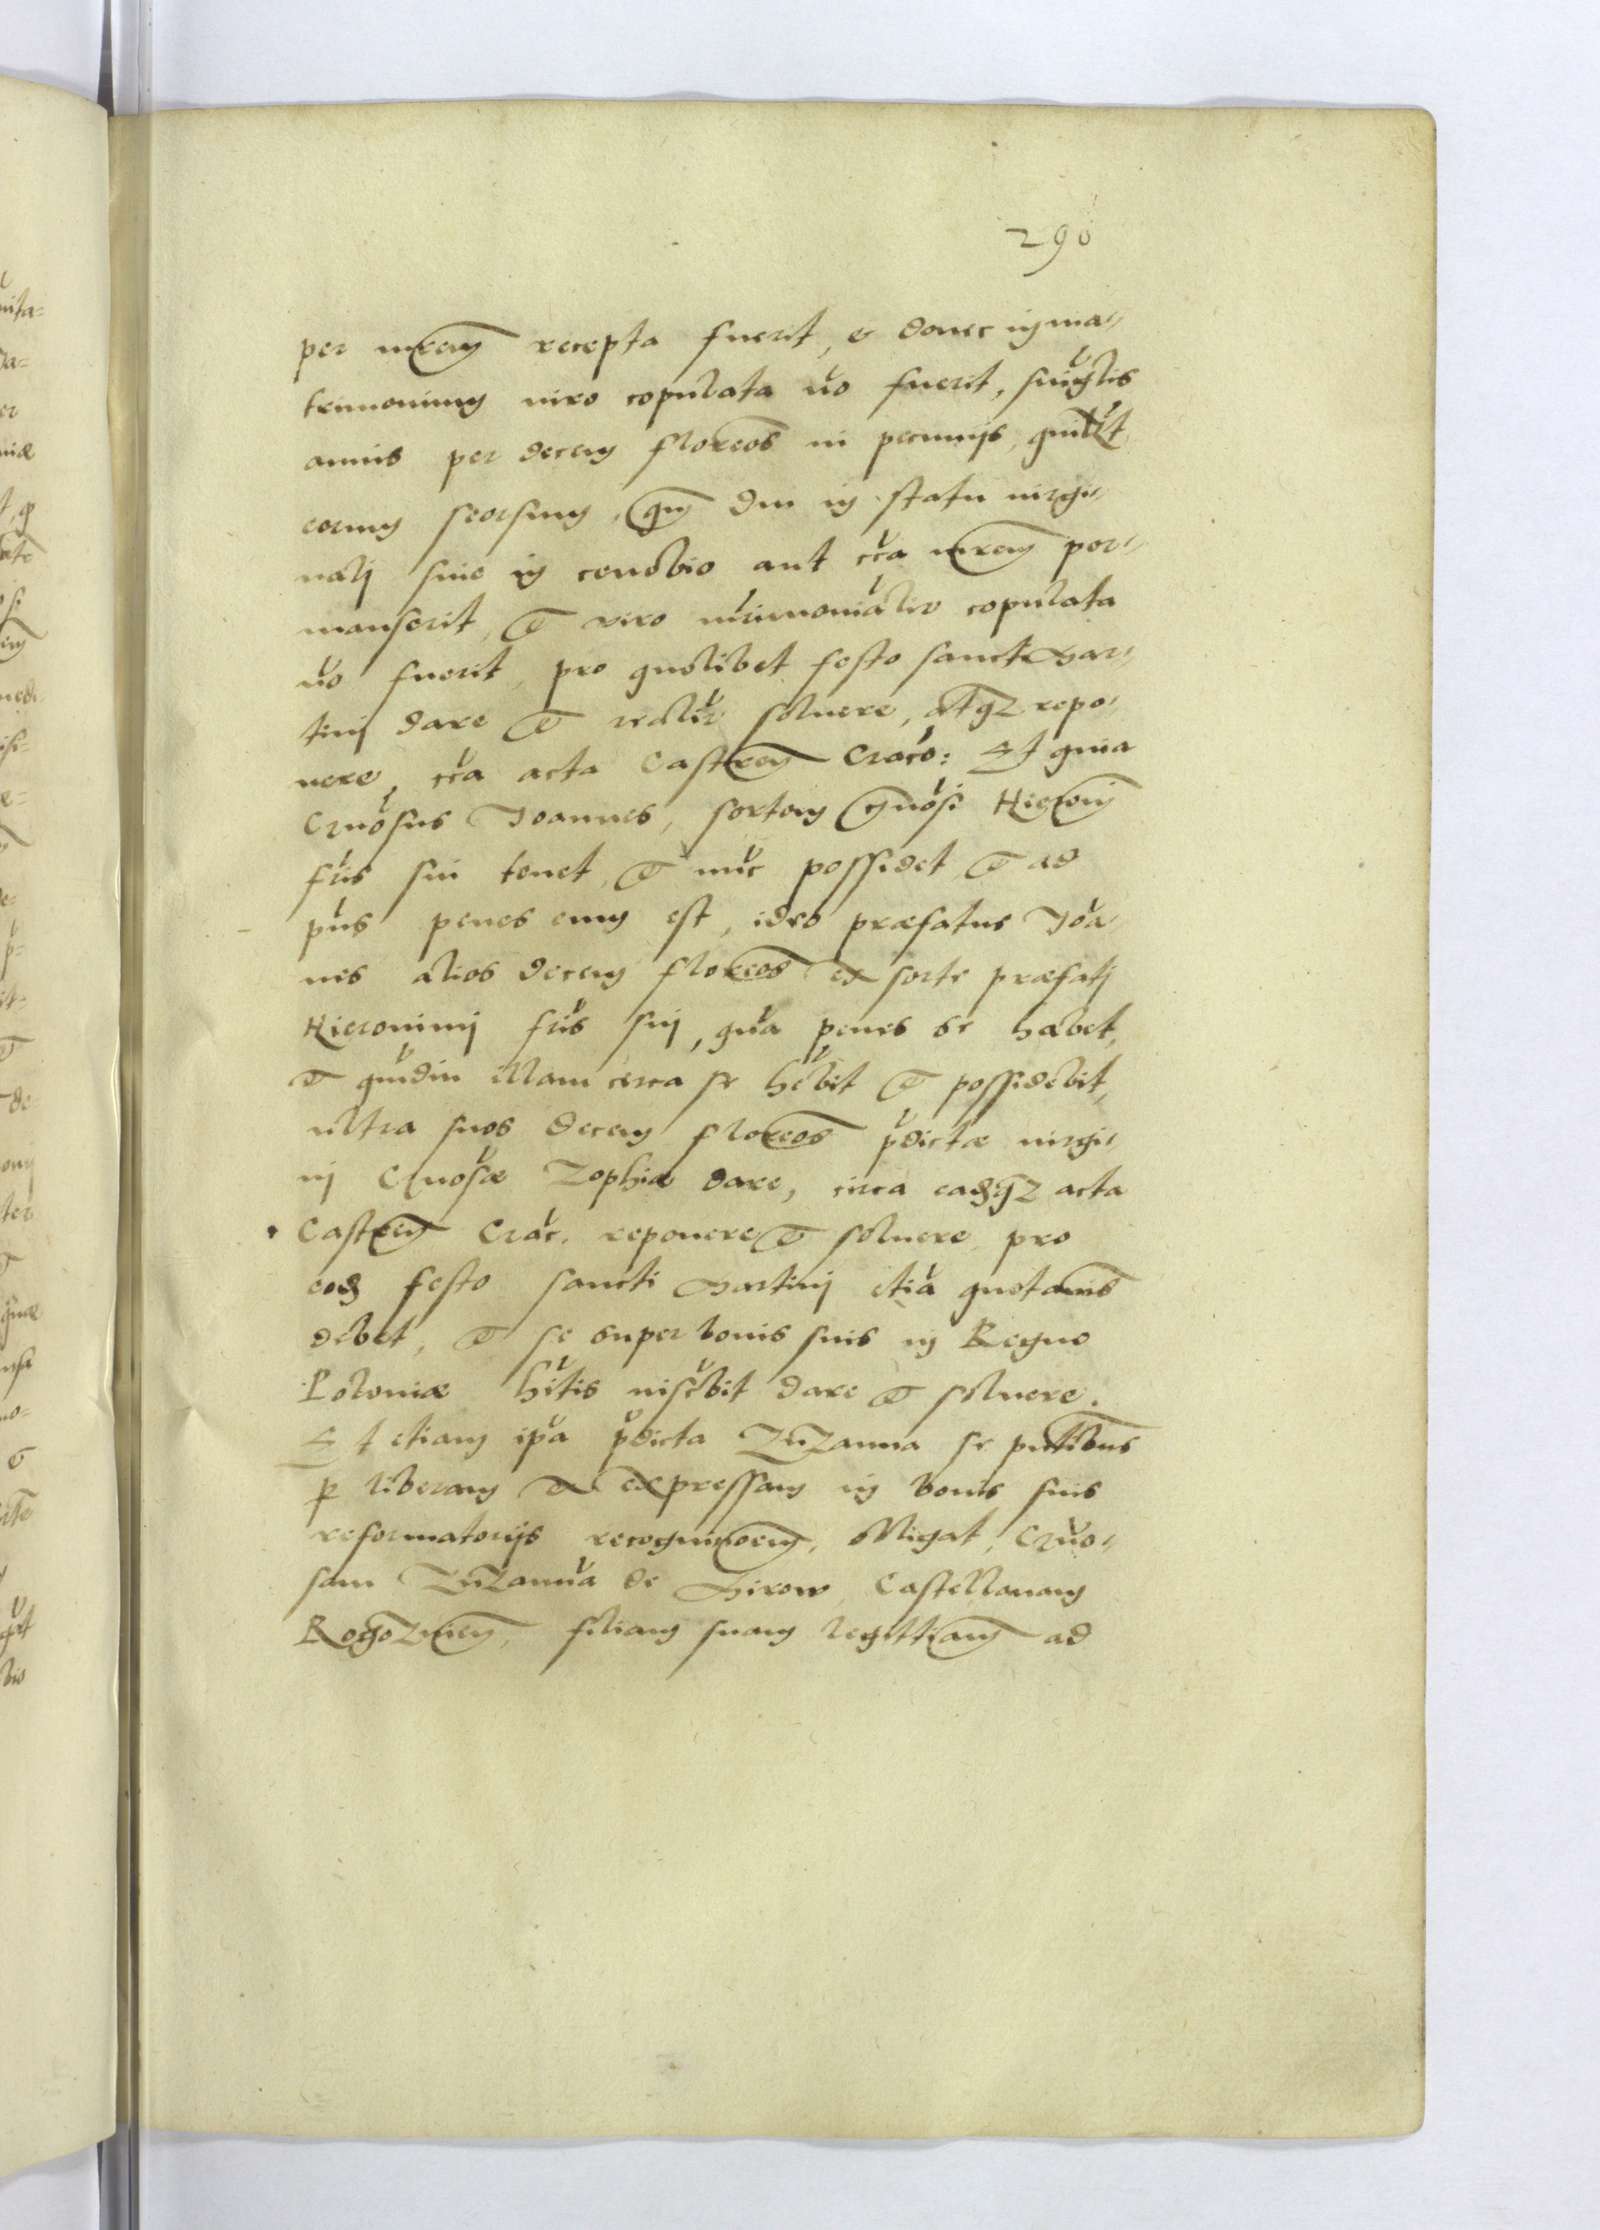 290
per mrem recepta fuerit, & donec in ma-
trimonium viro copulata no fuerit, singlis
annis per decem florenos in pecunijs, quilbt
eorum seorsim, qm diu in statu virgi-
nali siue in cenobio aut cca mrem per-
manserit, et viro mrimonialir copulata
no fuerit, pro quolibet festo sancti Mar-
tini dare et realir soluere, atqz repo-
nere, cca acta Castren Craco: Et quia
Gnosus Joannes, sortem Gnosi Hieronimi
fris sui tenet, et nuc possidet et ad
pns penes eum est, ideo præfatus Joa-
nes alios decem florenos ex sorte præfati
Hieronimi fris sui, qua penes se habet,
et qudiu illam circa se hebit et possidebit,
ultra suos decem florenos pdictæ virgi-
ni Gnosæ Zophiæ dare, circa eadqz acta
Castren Crac. reponere et soluere pro
eod festo sancti Martini etia quotannis
debet, et se super bonis suis in Regno
Poloniæ hitis inscrbit dare et soluere.
Et etiam ipa pdicta Zuzanna se pntibus
per liberam et expressam in bonis suis
reformatorijs recognitioem, obligat, Gno-
sam Zuzanna de Castellanam
filiam suam legittimam ad